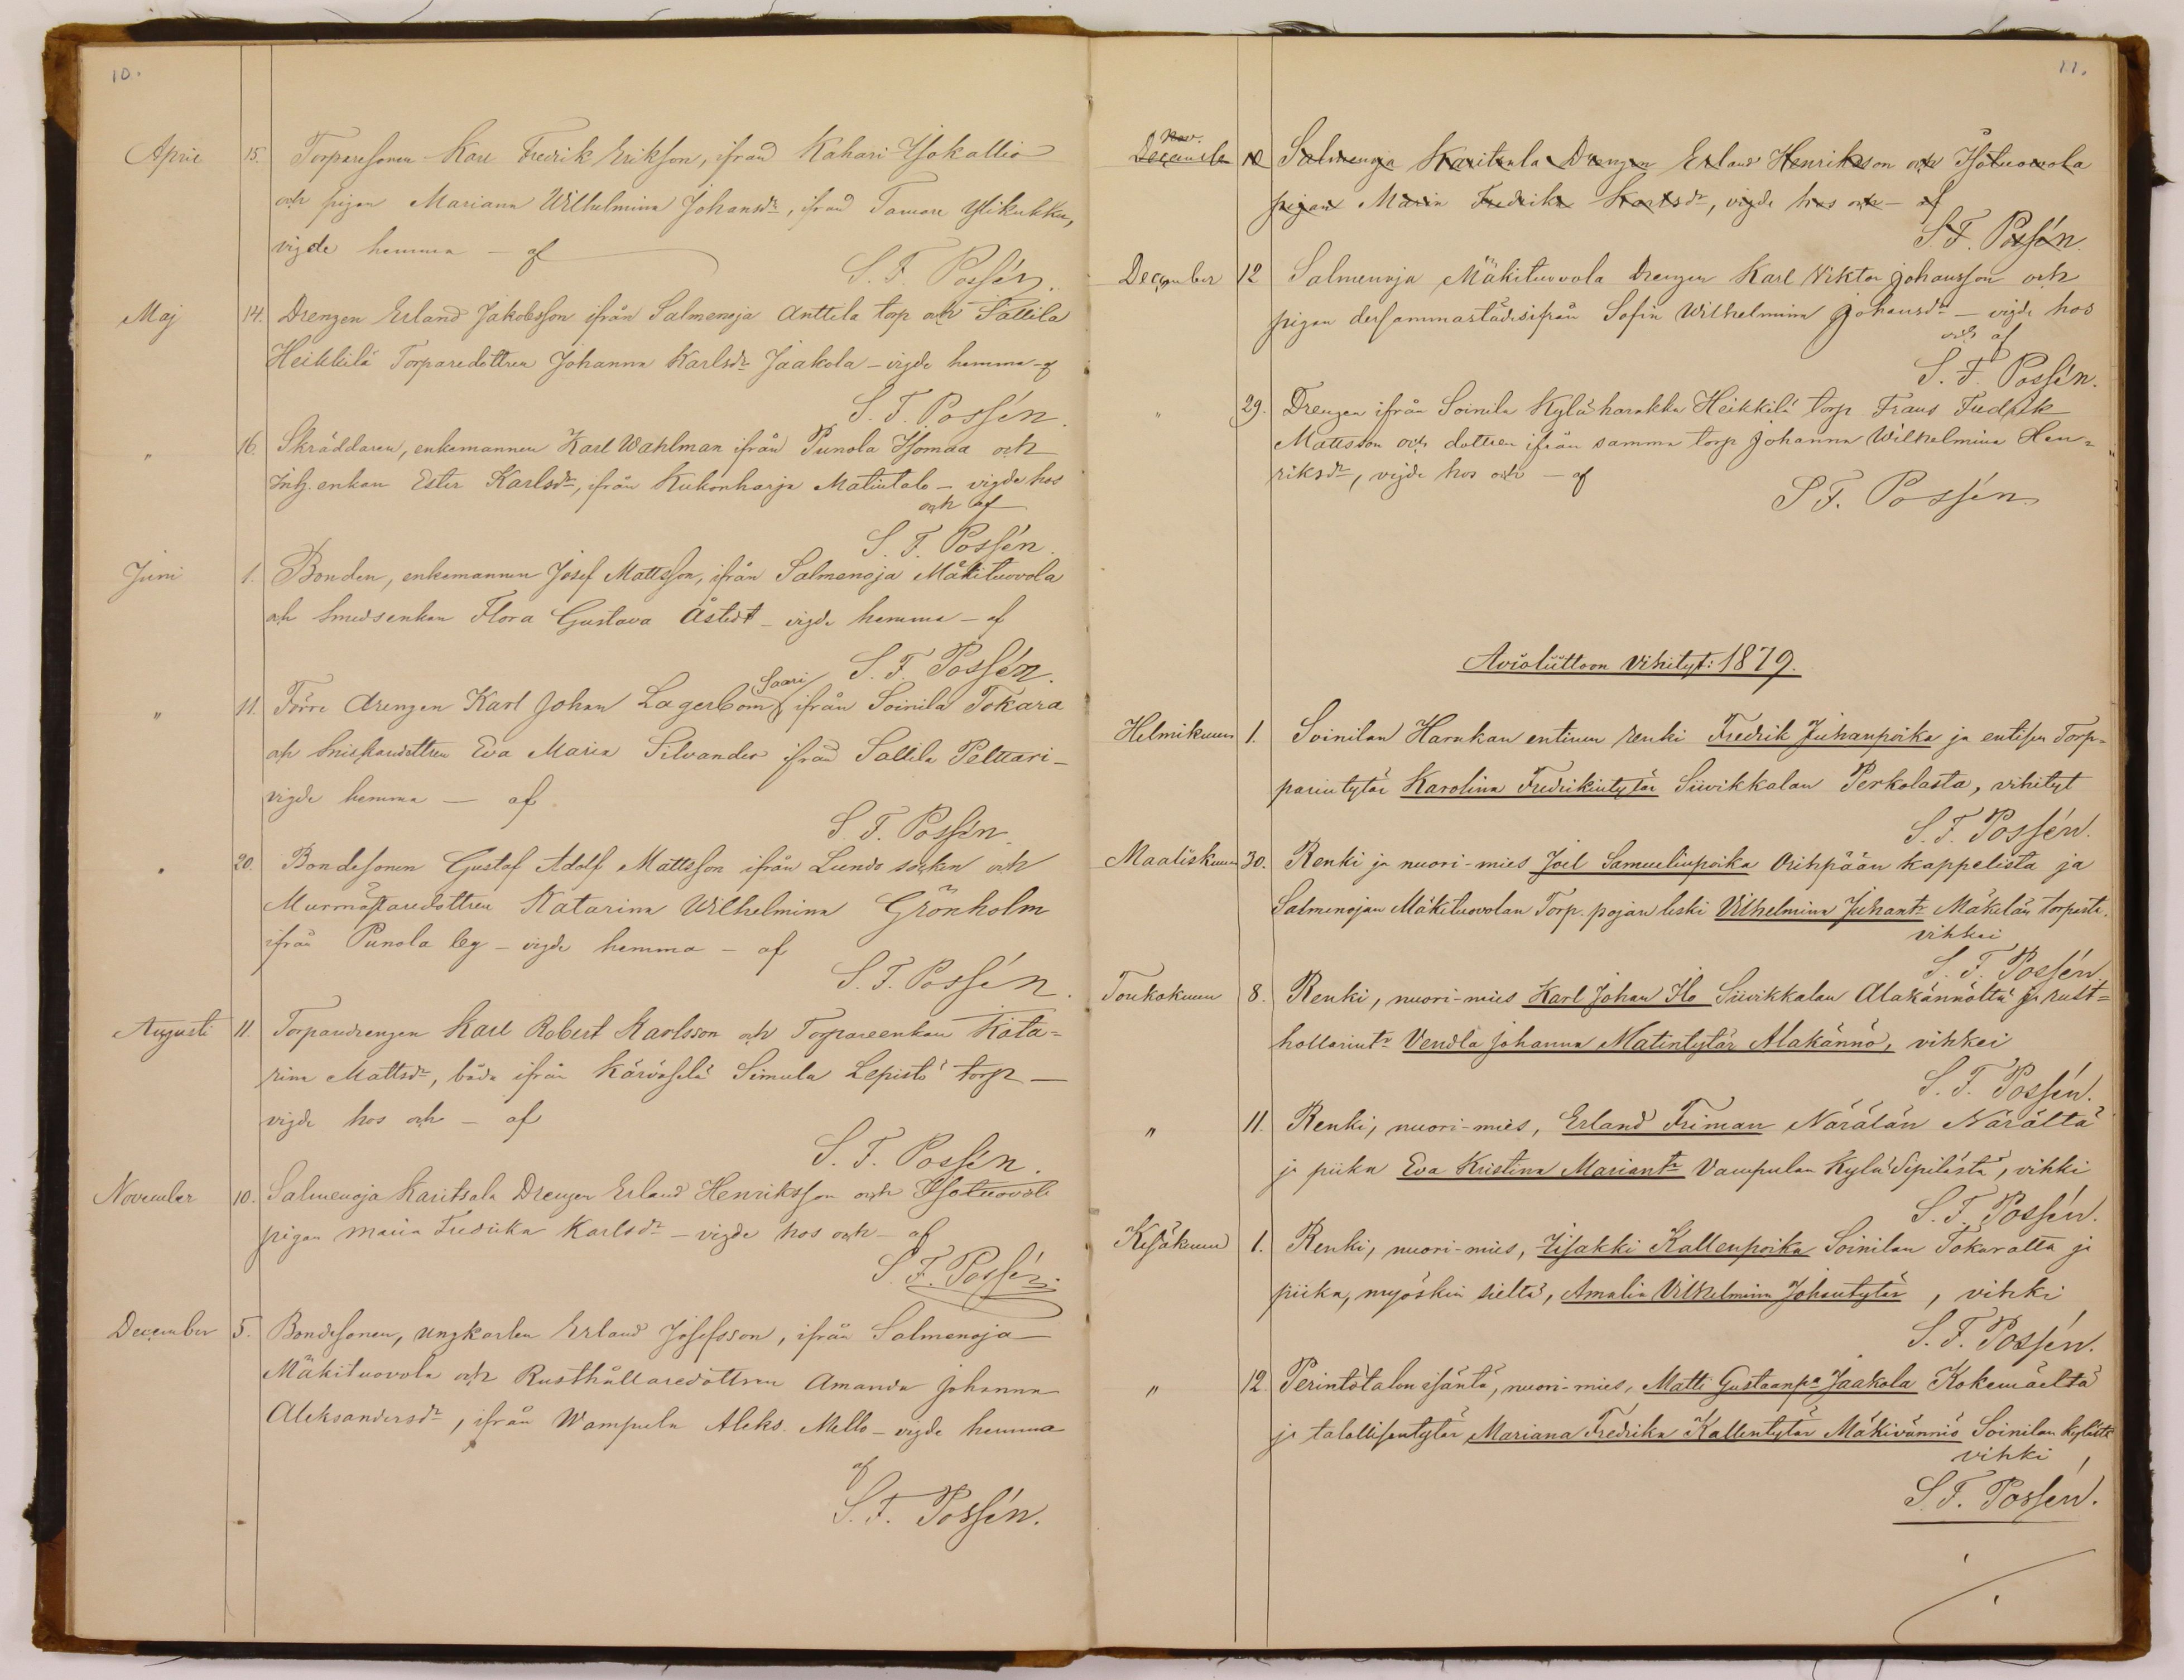 10.
April 15. Torparesonen Karl Fredrik Erikson, ifrån Kahari Isokallio
och pigan Mariana Wilhelmina Johansdr, ifrån Tamare Ylikukku,
vigde hemma – af
S. F. Possén.
Maj 14. Drengen Erland Jakobsson ifrån Salmenoja Anttila torp och Sallila
Heikkilä Torparedottren Johanna Karlsdr Jaakola – vigde hemma – af
S. F. Possén.
" 16. Skräddaren, enkemannen Karl Wahlman ifrån Punola Isomaa och
Inh. enkan Ester Karlsdr, ifrån Kukonharja Matintalo – vigde hos
och af
S. F. Possén.
Juni 1. Bonden, enkemannen Josef Mattsson, ifrån Salmenoja Mäkituovola
och Smedsenkan Flora Gustava Åstedt – vigde hemma – af
S. F. Possén.
" 11. Förre drengen Karl Johan Lagerbom Saari ifrån Soinila Tokara
och Eva Maria Silvander ifrån Sallila Peltari –
vigde hemma – af
S. F. Possén.
" 20. Bondesonen Gustaf Adolf Mattsson ifrån Lundo socken och
Murmästaredottren Katarina Wilhelmina Grönholm
ifrån Punola by – vigde hemma – af
S. F. Possén.
Augusti 11. Torpardrengen Karl Robert Karlsson och Torpareenkan Kata=
rina Mattsdr, båda ifrån Kärväselä Simula Lepistö torp –
vigde hos och – af
S. F. Possén.
November 10. Salmenoja Karitsala Drengen Erland Henriksson och Isotuovola
pigan Maria Fredrika Karlsdr – vigde hos och – af
S. F. Possén.
December 5. Bondesonen, ungkarlen Erland Josefsson, ifrån Salmenoja
Mäkituovola och Rusthållaredottren Amanda Johanna
Aleksandersdr, ifrån Wampula Aleks. Mello – vigde hemma
af
S. F. Possén.
11.
Nov.
December 10 Salmenoja Karitsala Drengen Erland Henrikson och Isotuovola
pigan Maria Fredrika Karlsdr, vigde hos och – af
S. F. Possén.
December 12 Salmenoja Mäkituovola Drengen Karl Viktor Johansson och
pigan dersammastädesifrån Sofia Wilhelmina Johansdr – vigde hos
och af
S. F. Possén.
" 29. Drengen ifrån Soinila Kyläharakka Heikkilä torp Frans Fredrik
Mattsson och dottren ifrån samma torp Johanna Wilhelmina Hen=
riksdr, vigde hos och – af
S. F. Possén
Avioliittoon vihityt: 1879.
Helmikuun 1. Soinilan Harakan entinen renki Fredrik Juhanpoika ja entisen Torp=
parintytär Karolina Fredrikintytär Siivikkalan Perkolasta, vihityt
S. F. Possén.
Maaliskuun 30. Renki ja nuori-mies Joel Samuelinpoika Orihpään kappelista ja
Salmenojan Mäkituovolan Torp. pojan leski Vilhelmina Juhantr Mäkelän torpista.
vihkei
S. F. Possén.
Toukokuun 8. Renki, nuori-mies Karl Johan Ilo Siivikkalan Alakännöltä ja rust=
hollarintr Vendla Johanna Matintytär Alakännö, vihkei
S. F. Possén.
" 11. Renki, nuori-mies, Erland Friman Närälän Närältä
ja piika Eva Kristina Mariantr Vampulan kylä Sipilästä, vihki
S. F. Possén.
Kesäkuun 1. Renki, nuori-mies, Iisakki Kallenpoika Soinilan Tokaralta ja
piika, myöskin sieltä, Amalia Vilhelmina Johantytär, vihki
S. F. Possén.
" 12. Perintötalon isäntä, nuori-mies, Matti Gustaanpa Jaakola Kokemäeltä
ja talollisentytär Mariana Fredrika Kallentytär Mäkivännio Soinilan kylästä
vihki
S. F. Possén.